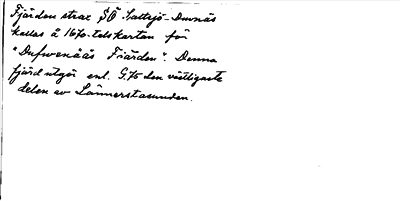 Fjärden strax SÖ Saltsjö-Duvnäs
kallas å 1670-talskartan för
"Dufwenääs Fiärden". Denna
fjärd utgör enl. G.K den västligaste
delen av Lännerstasunden.